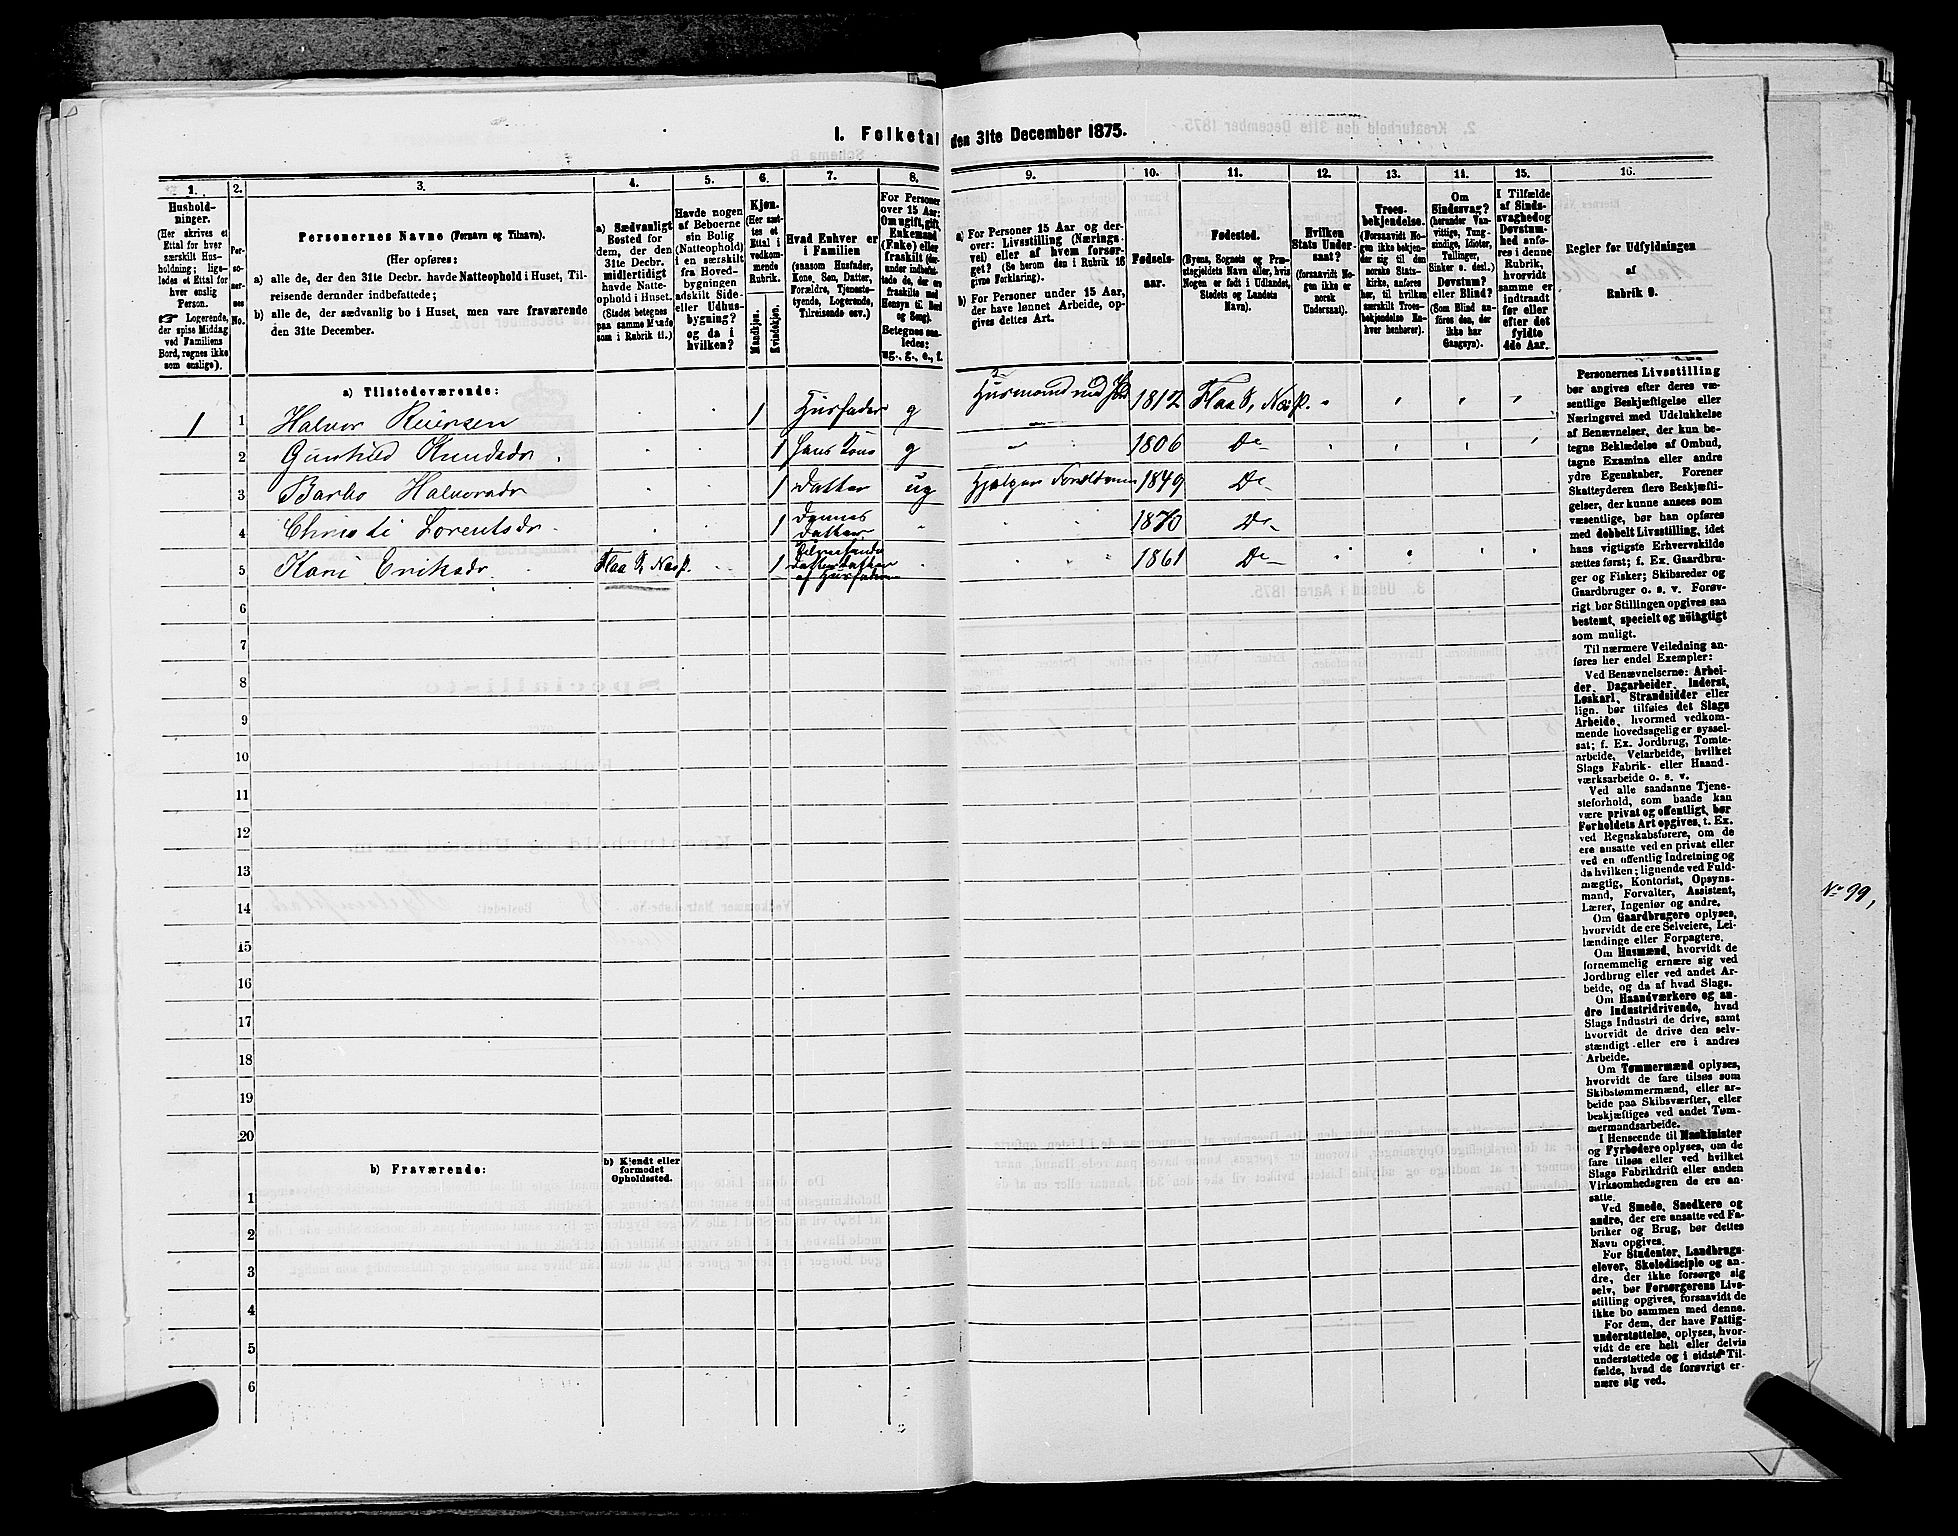 I. Folketal den 31te December 1875.
1.
Husholdninger.
(Her skrives et
Ettal for hver
særskilt Husholdning; ligeledes et Ettal for
hver enslig
Person.
☞ Logerende,
der spise Middag
ved Familiens
Bord, regnes ikke
som enslige).
2.
Personernes
No.
3.
Personernes Navne (Fornavn og Tilnavn).
(Her opføres:
a) alle de, der den 31te Decbr. havde Natteophold i Huset, Tilreisende derunder indbefattede;
b) alle de, der sædvanlig bo i Huset, men vare fraværende
den 31te December.
4.
a) Sædvanligt
Bosted for
dem, der den
31te Decbr.
midlertidigt
havde Natteophold i Huset.
(Stedet betegnes
paa samme Maade
som i Rubrik 11.)
5.
Havde nogen
af Beboerne
sin Bolig
(Natteophold)
i en særskilt
fra Hovedbygningen
adskilt Side-
eller Udhusbygning?
og da i
hvilken?
6.
Kjøn.
(Her sættes et
Ettal i
vedkommende
Rubrik.
Mandkjøn.
Kvindekjøn.
7.
Hvad Enhver er
i Familien
(saasom Husfader,
Kone, Søn, Datter,
Forældre, Tjenestetyende, Logerende,
Tilreisende osv.)
8.
For Personer
over 15 Aar:
Om ugift, gift,
Enkemand
(Enke) eller
fraskilt (derunder indbefattede de, der ere
fraskilte med
Hensyn til Bord
og Seng).
Betegnes saaledes:
ug., g., e., f.
9.
a) For Personer 15 Aar og derover: Livsstilling (Næringsvei) eller af hvem forsørget? (Se herom den i Rubrik 16
givne Forklaring).
b) For Personer under 15 Aar,
der have lønnet Arbeide, opgives dettes Art.
10.
Fødselsaar.
11.
Fødested.
(Byens, Sognets og Præstegjeldets Navn eller, hvis
Nogen er født i Udlandet,
Stedets og Landets
Navn).
12.
Hvilken
Stats Undersaat?
(forsaavidt Nogen ikke er
norsk
Undersaat).
13.
Troesbekjendelse.
(Forsaavidt Nogen ikke bekjender sig til den
norske Statskirke, anføres
her, til hvilken
særskilt Troesbekjendelse Enhver henhører).
14.
Om
Sindssvag?
(herunder Vanvittige, Tungsindige, Idioter,
Tullinger,
Sinker o. desl.)
Døvstum?
eller Blind?
(Som Blind anføres den, der
ikke har
Gangsyn).
15.
I Tilfælde
af Sindssvaghed og
Døvstumhed anføres i denne
Rubrik,
hvorvidt
samme er
indtraadt
før eller
efter det
fyldte
4de Aar.
16.
Regler for Udfyldningen
af
Rubrik 9.
a) Tilstedeværende:
1 1 Halvor Reiersen 1 Husfader g Husmand med Jord 1812 Flaa S, Næs P.
2 Gunhild Knudsdr 1 hans Kone g " 1806 Do
3 Barbo Halvorsdr 1 Datter ug Hjælper Forældrene 1849 Do
4 Christi Lorentsdr 1 Dennes Datter 1870 Do
5 Kari Eriksdr Flaa S, Næs P. 1 Datterdatter af Husfaderen 1861 Do
6
7
8
9
10
11
12
13
14
15
16
17
18
19
20
b) Fraværende:
b) Kjendt eller
formodet
Opholdssted.
1
2
3
4
5
6
Personernes Livsstilling
bør angives efter deres væsentlige Beskjæftigelse eller
Næringsvei med Udelukkelse
af Benævnelser, der kun betegne Beklædelse af Ombud,
tagne Examina eller andre
ydre Egenskaber. Forener
Skatteyderen flere Beskjæftigelser, der kunne ansees som
væsentlige, bør han opføres
med dobbelt Livsstilling, idet
hans vigtigste Erhvervskilde
sættes først; f. Ex. Gaardbruger og Fisker; Skibsreder og
Gaardbruger o. s. v. Forøvrigt bør Stillingen opgives saa
bestemt, specielt og nöiagtigt
som muligt.
Til nærmere Veiledning anføres her endel Exempler:
Ved Benævnelserne: Arbeider, Dagarbeider, Inderst,
Løskarl, Strandsidder eller
lign. bør tilføies det Slags
Arbeide, hvormed vedkommende hovedsagelig er sysselsat; f. Ex. Jordbrug, Tomtearbeide, Veiarbeide, hvilket
Slags Fabrik- eller Haandværksarbeide o. s. v.
Ved alle saadanne Tjenesteforhold, som baade kan
være privat og offentligt, bør
Forholdets Art opgives, f. Ex.
ved Regnskabsførere, om de
ere ansatte ved en privat eller
ved en offentlig Indretning og
da hvilken; lignende ved Fuldmægtig, Kontorist, Opsynsmand, Forvalter, Assistent,
Lærer, Ingeniør og andre.
Om Gaardbrugere oplyses,
hvorvidt de ere Selveiere, Leilændinge eller Forpagtere.
Om Husmænd, hvorvidt de
fornemmelig ernære sig ved
Jordbrug eller ved andet Arbeide, og da af hvad Slags.
Om Haandværkere og andre Industridrivende, hvad
Slags Industri de drive, samt
hvorvidt de drive den selvstændigt eller ere i andres
Arbeide.
Om Tømmermænd oplyses,
hvorvidt de fare tilsøs som
Skibstømmermænd, eller arbeide paa Skibsværfter, eller
beskjæftiges ved andet Tømmermandsarbeide.
I Henseende til Maskinister
og Fyrbødere oplyses, om de
fare tilsøs eller ved hvilket
Slags Fabrikdrift eller anden
Virksomhedsgren de ere ansatte.
Ved Smede, Snedkere og
andre, der ere ansatte ved Fabriker og Brug, bør dettes
Navn opgives.
For Studenter, Landbrugselever, Skoledisciple og andre, der ikke forsørge sig
selv, bør Forsørgerens Livsstilling opgives, forsaavidt de
ikke bo sammen med denne.
For dem, der have Fattigunderstøttelse, oplyses, hvorvidt de ere helt eller delvis
understøttede og i sidste Tilfælde, hvad de forøvrigt ernære sig ved.
No 99,